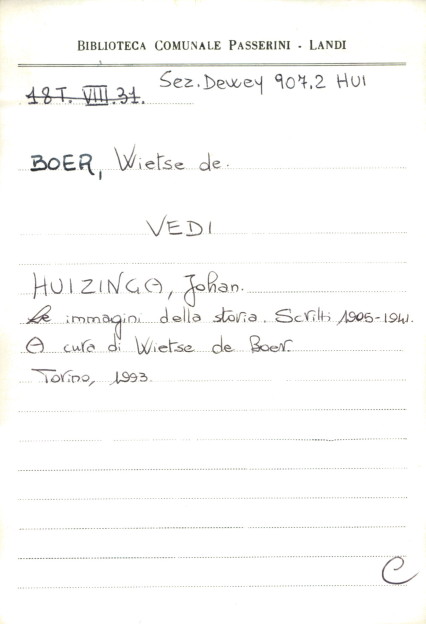 BIBLIOTECA COMUNALE PASSERINI - LANDI
18T. VIII.31. Sez. Dewey 907.2 HUI
BOER, Wietse de.
VEDI
HUIZINGA, Johan.
Le immagini della storia. Scritti 1905-1941.
A cura di Wietse de Boer.
Torino, 1993.
C